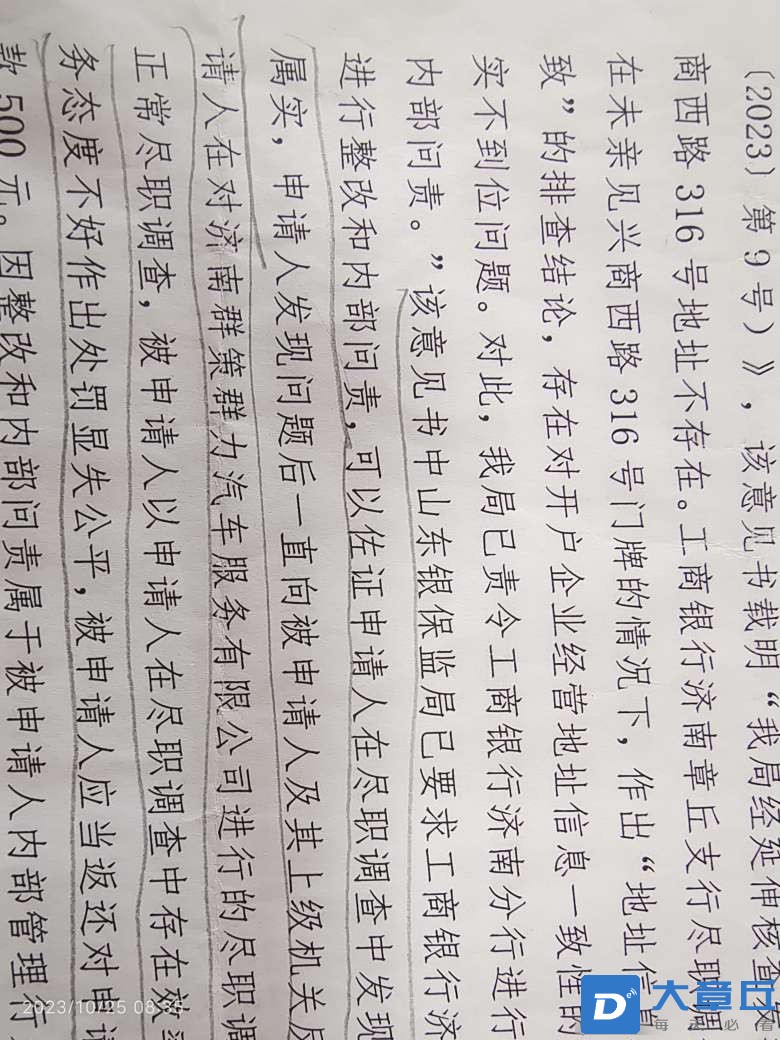 〔2023〕第9号）》，该意见书载明“我局经延伸核查发
商西路316号地址不存在。工商银行济南章丘支行尽职调
在未亲见兴商西路316号门牌的情况下，作出“地址信息
致”的排查结论，存在对开户企业经营地址信息一致性的
实不到位问题。对此，我局已责令工商银行济南分行进行
内部问责。”该意见书中山东银保监局已要求工商银行济
进行整改和内部问责，可以佐证申请人在尽职调查中发现
属实，申请人发现问题后一直向被申请人及其上级机关反
请人在对济南群策群力汽车服务有限公司进行的尽职调
正常尽职调查，被申请人以申请人在尽职调查中存在效率
务态度不好作出处罚显失公平，被申请人应当返还对申请
款500元。因整改和内部问责属于被申请人内部管理行
2023/10/25 08:35
大章丘
每天必看